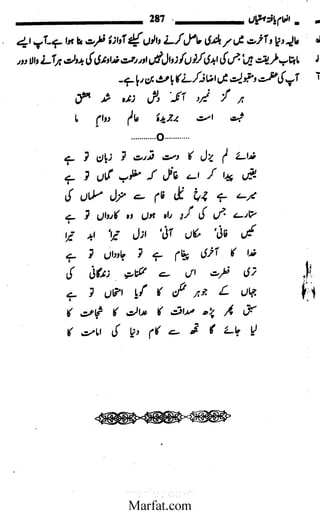 انعام یافتہ ہستیاں 287
عالیہ دنیا و آخرت میں سربلندی حاصل کرنے والوں کیلئے آوازۂ فطرت بنا ہوا ہے۔ آپ ایسے
ماہتاب طریقت ہیں جس کی ابدی کرنوں کو زوال نہیں اور رحمت خداوندی کی بدولت ہر آنے والا دور
آپ کی عظمت و مقبولیت میں اضافہ کرنے کا باعث بن رہا ہے۔
ہر گز نمیرد آنکہ دلش زندہ شد بعشق
ثبت است برجریدۂ عالم دوام ما
..........O..........
خدائے لم یزل کا دست قدرت تو زباں تو ہے
یقیں پیدا کر اے غافل کہ مغلوب گماں تو ہے
پرے ہے چرخ نیلی فام سے منزل مسلماں کی
ستارے جس کی گرد راہ ہوں وہ کارواں تو ہے
مکیں فانی، مکاں آنی، ازل تیرا ابد تیرا
خدا کا آخری پیغام ہے تو جاوداں تو ہے
تری فطرت امیں ہے ممکنات زندگانی کی
جہاں کے جوہر مضمر کا گویا امتحاں تو ہے
سبق پھر پڑھ صداقت کا عدالت کا شجاعت کا
لیا جائے گا تجھ سے کام دنیا کی امامت کا
Marfat.com